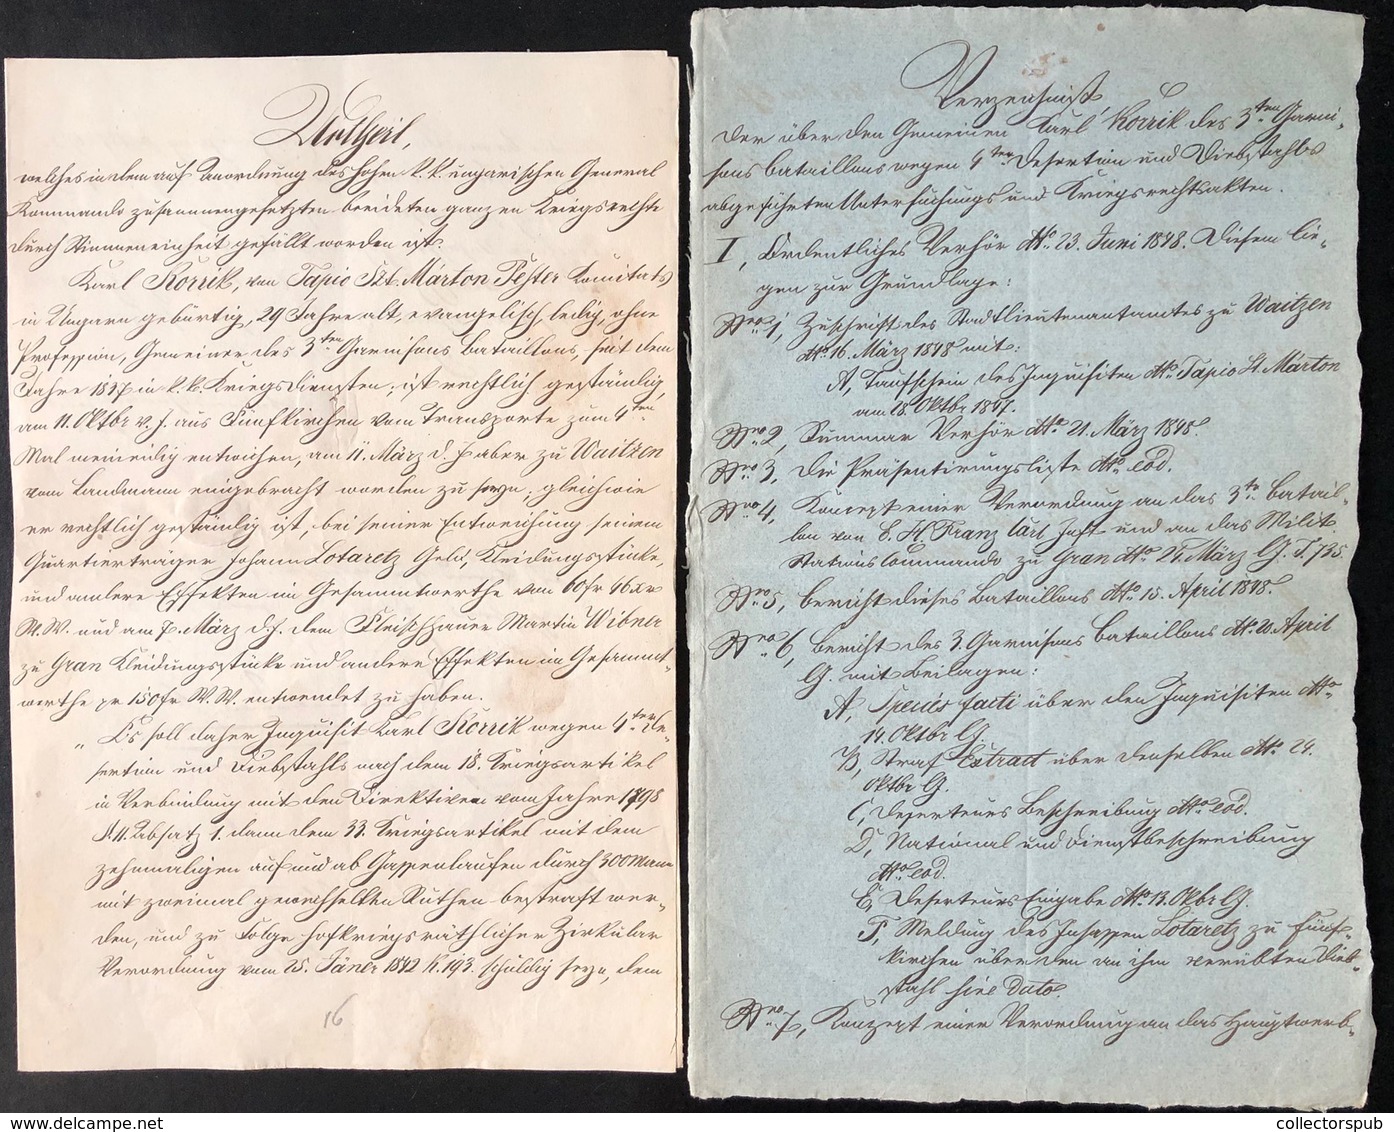 Urtheil,
welches in dem auf Anordnung des hohen k. k. ungarischen General
Kommando zusammengesetzten beeideten ganzen Kriegsrechte
durch Stimmeneinheit gefällt worden ist.
Karl Korrik, von Tapio Szt. Márton Pester Komitats
in Ungarn gebürtig, 29 Jahre alt, evangelisch, ledig, ohne
Profession, Gemeiner des 3ten Garnisons Bataillons, seit dem
Jahre 1837 in k. k. Kriegsdiensten, ist rechtlich geständig,
am 11. Oktbr v. J. aus Fünfkirchen vom Transporte zum 4ten
Mal meineidig entwichen, am 11. März d. J. aber zu Waitzen
vom Landmann eingebracht worden zu seyn; gleichwie
er rechtlich geständig ist, bei seiner Entweichung seinem
Quartierträger Johann Lotaretz Geld, Kleidungsstücke,
und andere Effekten im Gesammtwerthe von 60 fr 46 xr
W. W. und am 7. März d. J. dem Fleischhauer Martin Wibner
zu Gran Kleidungsstücke und andere Effekten im Gesammt-
werthe pr 150 fr W. W. entwendet zu haben.
„Es soll daher Inquisit Karl Korrik wegen 4ter De-
sertion und Diebstahls nach dem 18. Kriegsartikel
in Verbindung mit den Direktiven vom Jahre 1798
Absatz 1. dann dem 33. Kriegsartikel mit dem
zehnmaligen auf und ab Gassenlaufen durch 300 Mann
mit zweimal gewechselten Ruthen bestraft wer-
den, und zu Folge hofkriegsräthlicher Zirkular
Verordnung vom 25. Jäner 1842 N. 193. schuldig seyn, dem
16
Verzeichniß,
der über den Gemeinen Karl Korrik des 3ten Garni-
sons Bataillons wegen 4ter Desertion und Diebstahls
abgeführten Untersuchungs und Kriegsrechtsakten.
I, Ordentliches Verhör dto 23. Juni 1848. Diesem lie-
gen zur Grundlage:
Nro 1, Zuschrift des Stadtlieutenantamtes zu Waitzen
dto 16. März 1848 mit:
A, Taufschein des Inquisiten dto Tapio St. Márton
am 28. Oktbr 1847.
Nro 2, Summar Verhör dto 21. März 1848.
Nro 3, Die Präsentirungsliste dto eod.
Nro 4, Konzept einer Verordnung an das 3te Batail-
lon von E. H. Franz Carl Inft und an das Milit
Stations Commando zu Gran dto 24. März
Nro 5, Bericht dieses Bataillons dto 15. April 1848.
Nro 6, Bericht des 3. Garnisons Bataillons dto 20. April
mit Beilagen:
A, Species facti über den Inquisiten dto
14. Oktbr
B, Straf Extract über denselben dto 24.
Oktbr
C, Deserteurs Beschreibung dto eod.
D, National und Dienstbeschreibung
dto eod.
E, Deserteurs Eingabe dto 13. Oktbr
F, Meldung des Insassen Lotaretz zu Fünf-
kirchen über den an ihm verübten Dieb-
stahl sine dato.
Nro 7, Konzept einer Verordnung an das Hauptwerb-
collectorspub